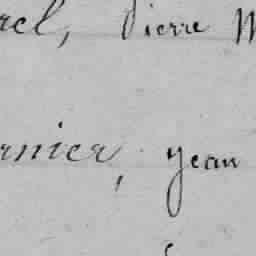 rel, Pierre M
rnier, Jean